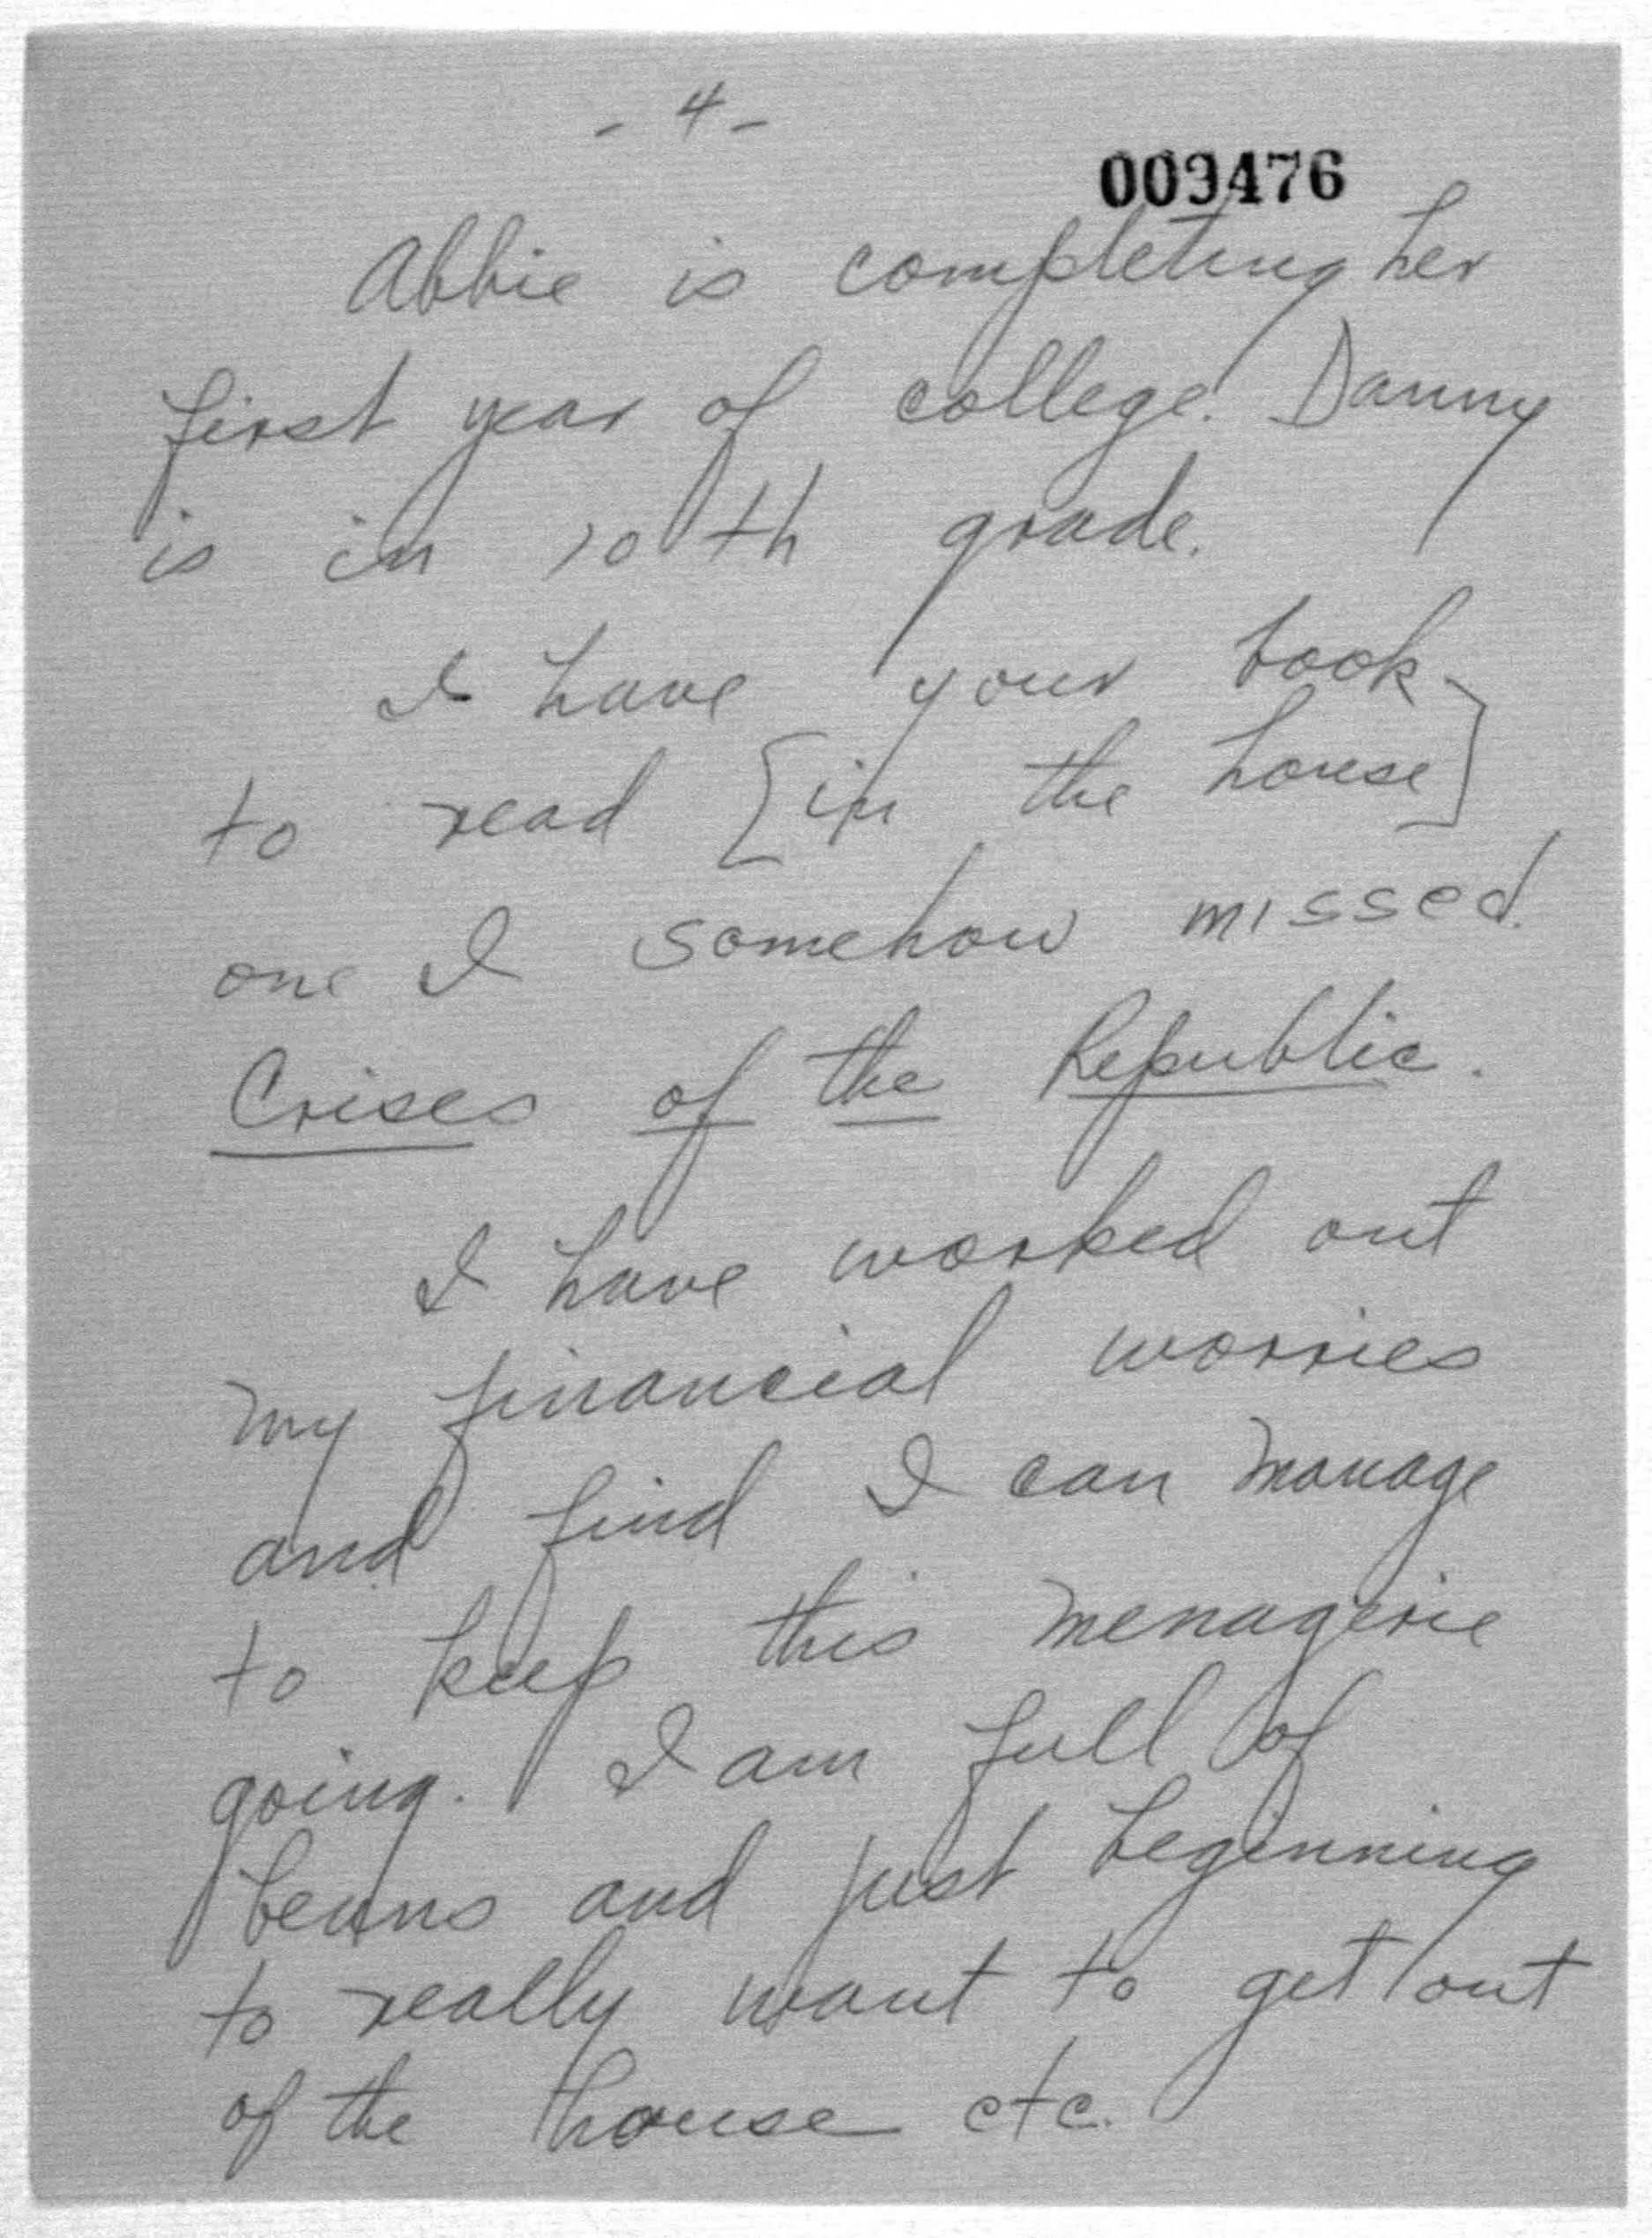 - 4 -
009476
Abbie is completing her
first year of college. Danny
is in 10th grade.
I have your book
to read [in the house]
one I somehow missed.
Crises of the Republic.
I have worked out
my financial worries
and find I can manage
to keep this menagerie
going. I am full of
beans and just beginning
to really want to get out
of the house etc.